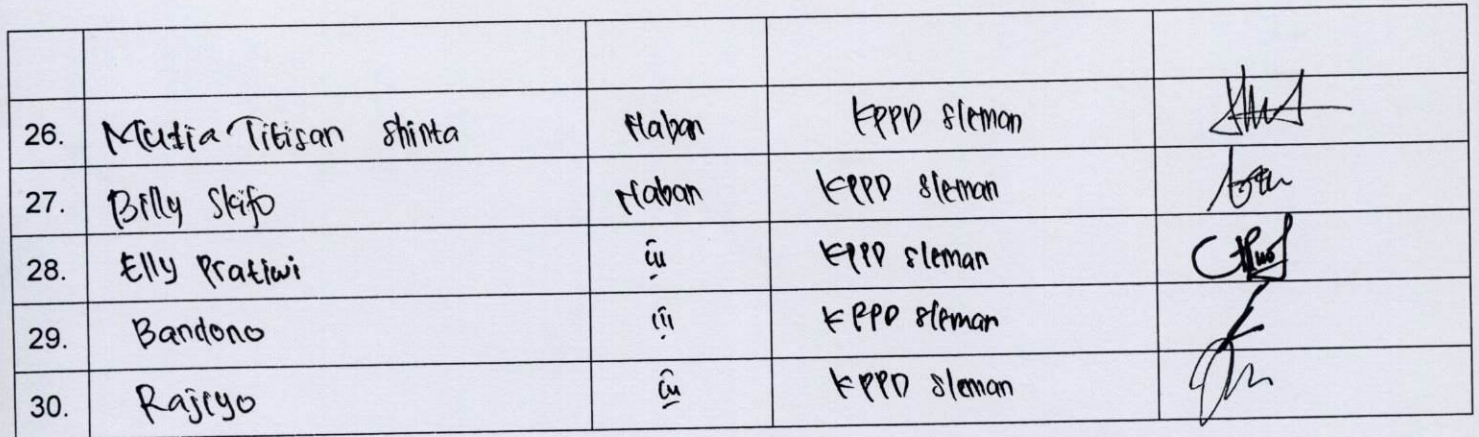 26. Mutia Titisan Shinta Naban KPPD Sleman
27. Billy Skifo Naban KPPD Sleman
28. Elly Pratiwi KPPD Sleman
29. Bandono KPPD Sleman
30. Rajiyo KPPD Sleman